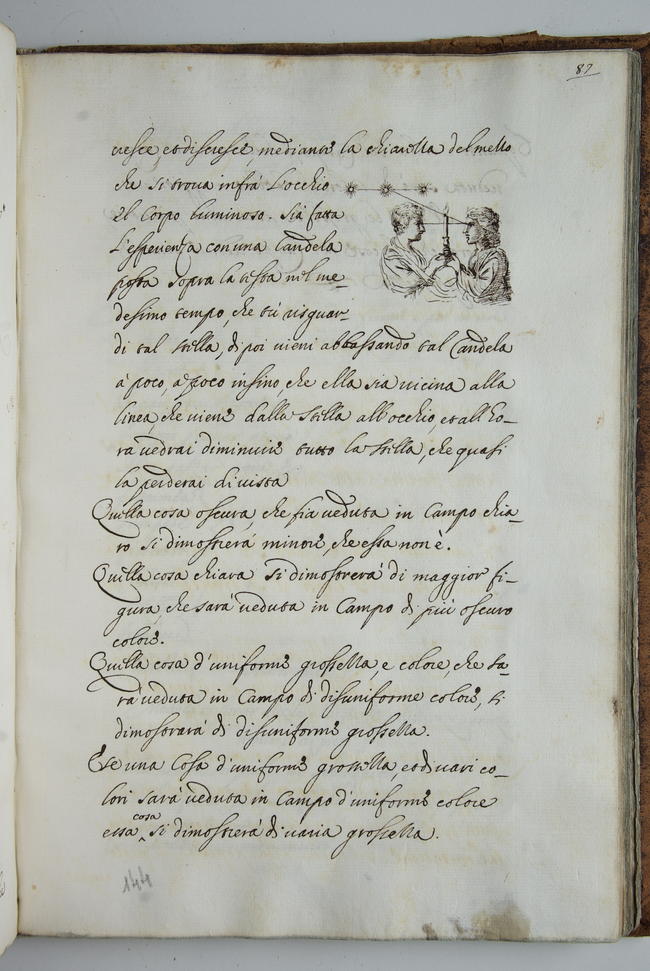 87
cresce, et discresce, mediante la chiarezza del mezzo
che si trova infrà l'occhio
el Corpo luminoso. Sia fatta
l'esperienza con una Candela
posta sopra la testa nel me-
desimo tempo, che tù risguar-
di tal stella, di poi vieni abbassando tal Candela
à poco, à poco insino, che ella sia vicina alla
linea, che viene dalla stella all'occhio, et all'ho-
ra vedrai diminuire tutto la stella, che quasi
la perderai di vista
Quella cosa oscura, che fia veduta in Campo chia-
ro si dimostrerà minore, che essa non è.
Quella cosa chiara si dimostrerà di maggior fi-
gura, che sarà veduta in Campo di più oscuro
colore.
Quella cosa d'uniforme grossezza, e colore, che sa-
rà veduta in Campo di disuniforme colore, si
dimostrarà di disuniforme grossezza.
E se una Cosa d'uniforme grossezza, et di vari co-
lori sarà veduta in Campo d'uniforme colore
essa cosa si dimostrerà di varia grossezza.
144